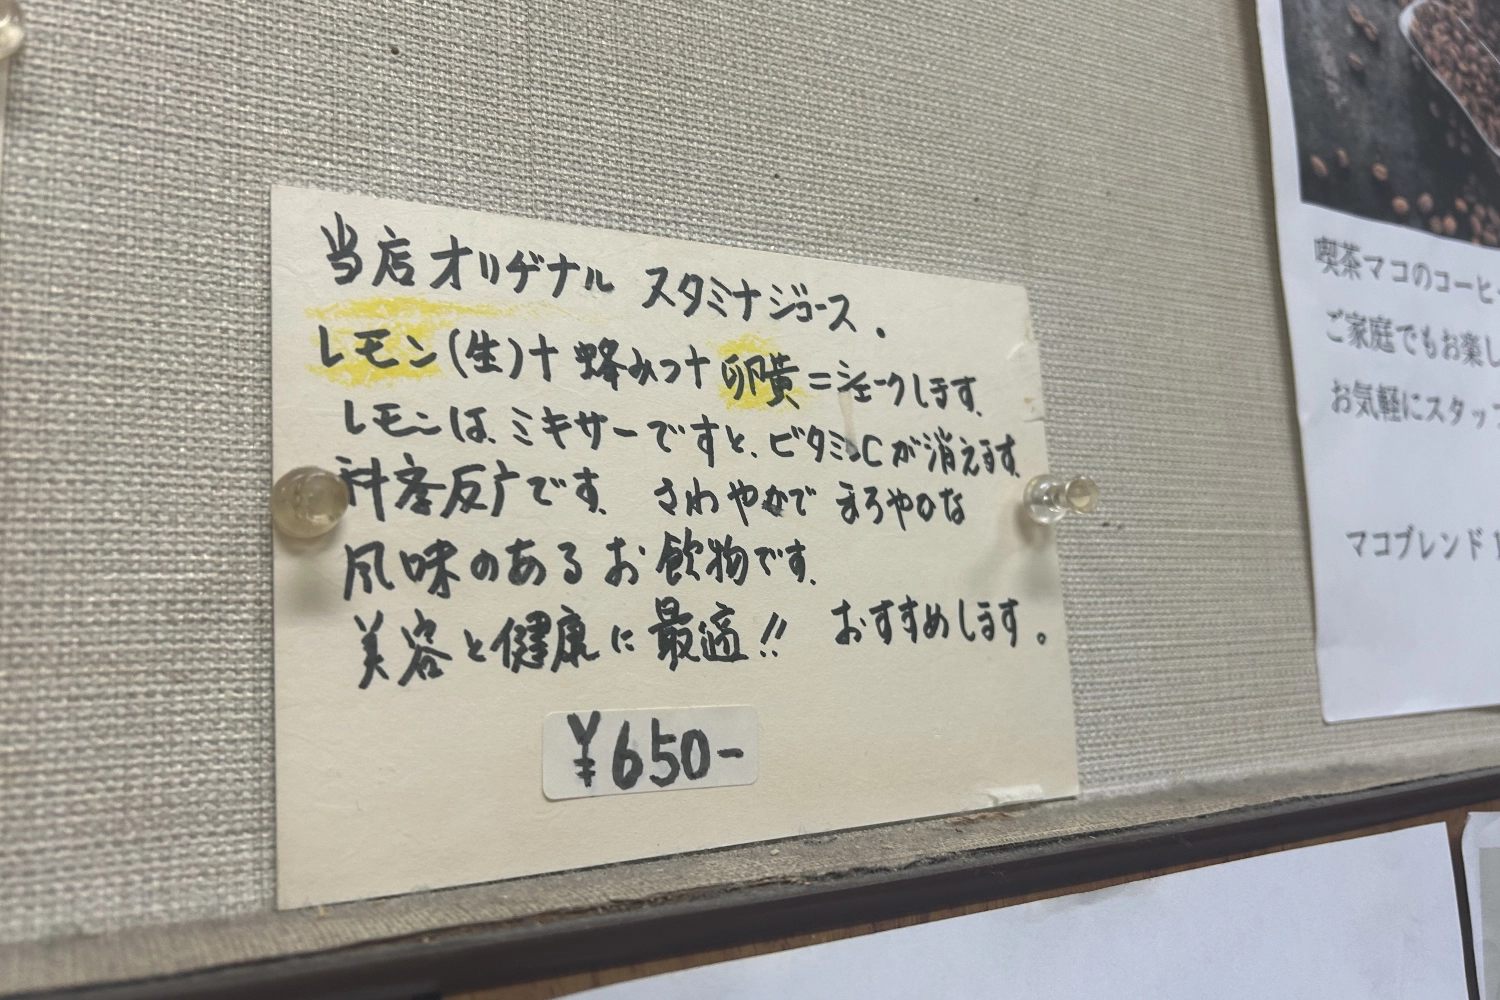 当店オリヂナル スタミナジュース.
レモン(生)+蜂みつ+卵黄=シェークします.
レモンは、ミキサーですと、ビタミンCが消えます.
科学反广です. さわやかで まろやかな
風味のあるお飲物です.
美容と健康に最適!! おすすめします。
¥650-
喫茶マコのコーヒー
ご家庭でもお楽し
お気軽にスタッフ
マコブレンド